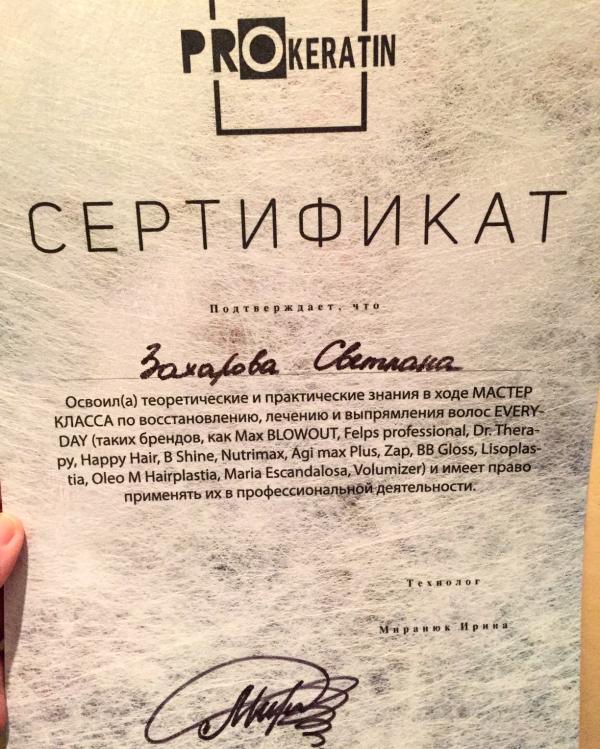 PROKERATIN
СЕРТИФИКАТ
Подтверждает, что
Захарова Светлана
Освоил(а) теоретические и практические знания в ходе МАСТЕР
КЛАССА по восстановлению, лечению и выпрямления волос EVERY-
DAY (таких брендов, как Max BLOWOUT, Felps professional, Dr. Thera-
py, Happy Hair, B Shine, Nutrimax, Agi max Plus, Zap, BB Gloss, Lisoplas-
tia, Oleo M Hairplastia, Maria Escandalosa, Volumizer) и имеет право
применять их в профессиональной деятельности.
Технолог
Миранюк Ирина